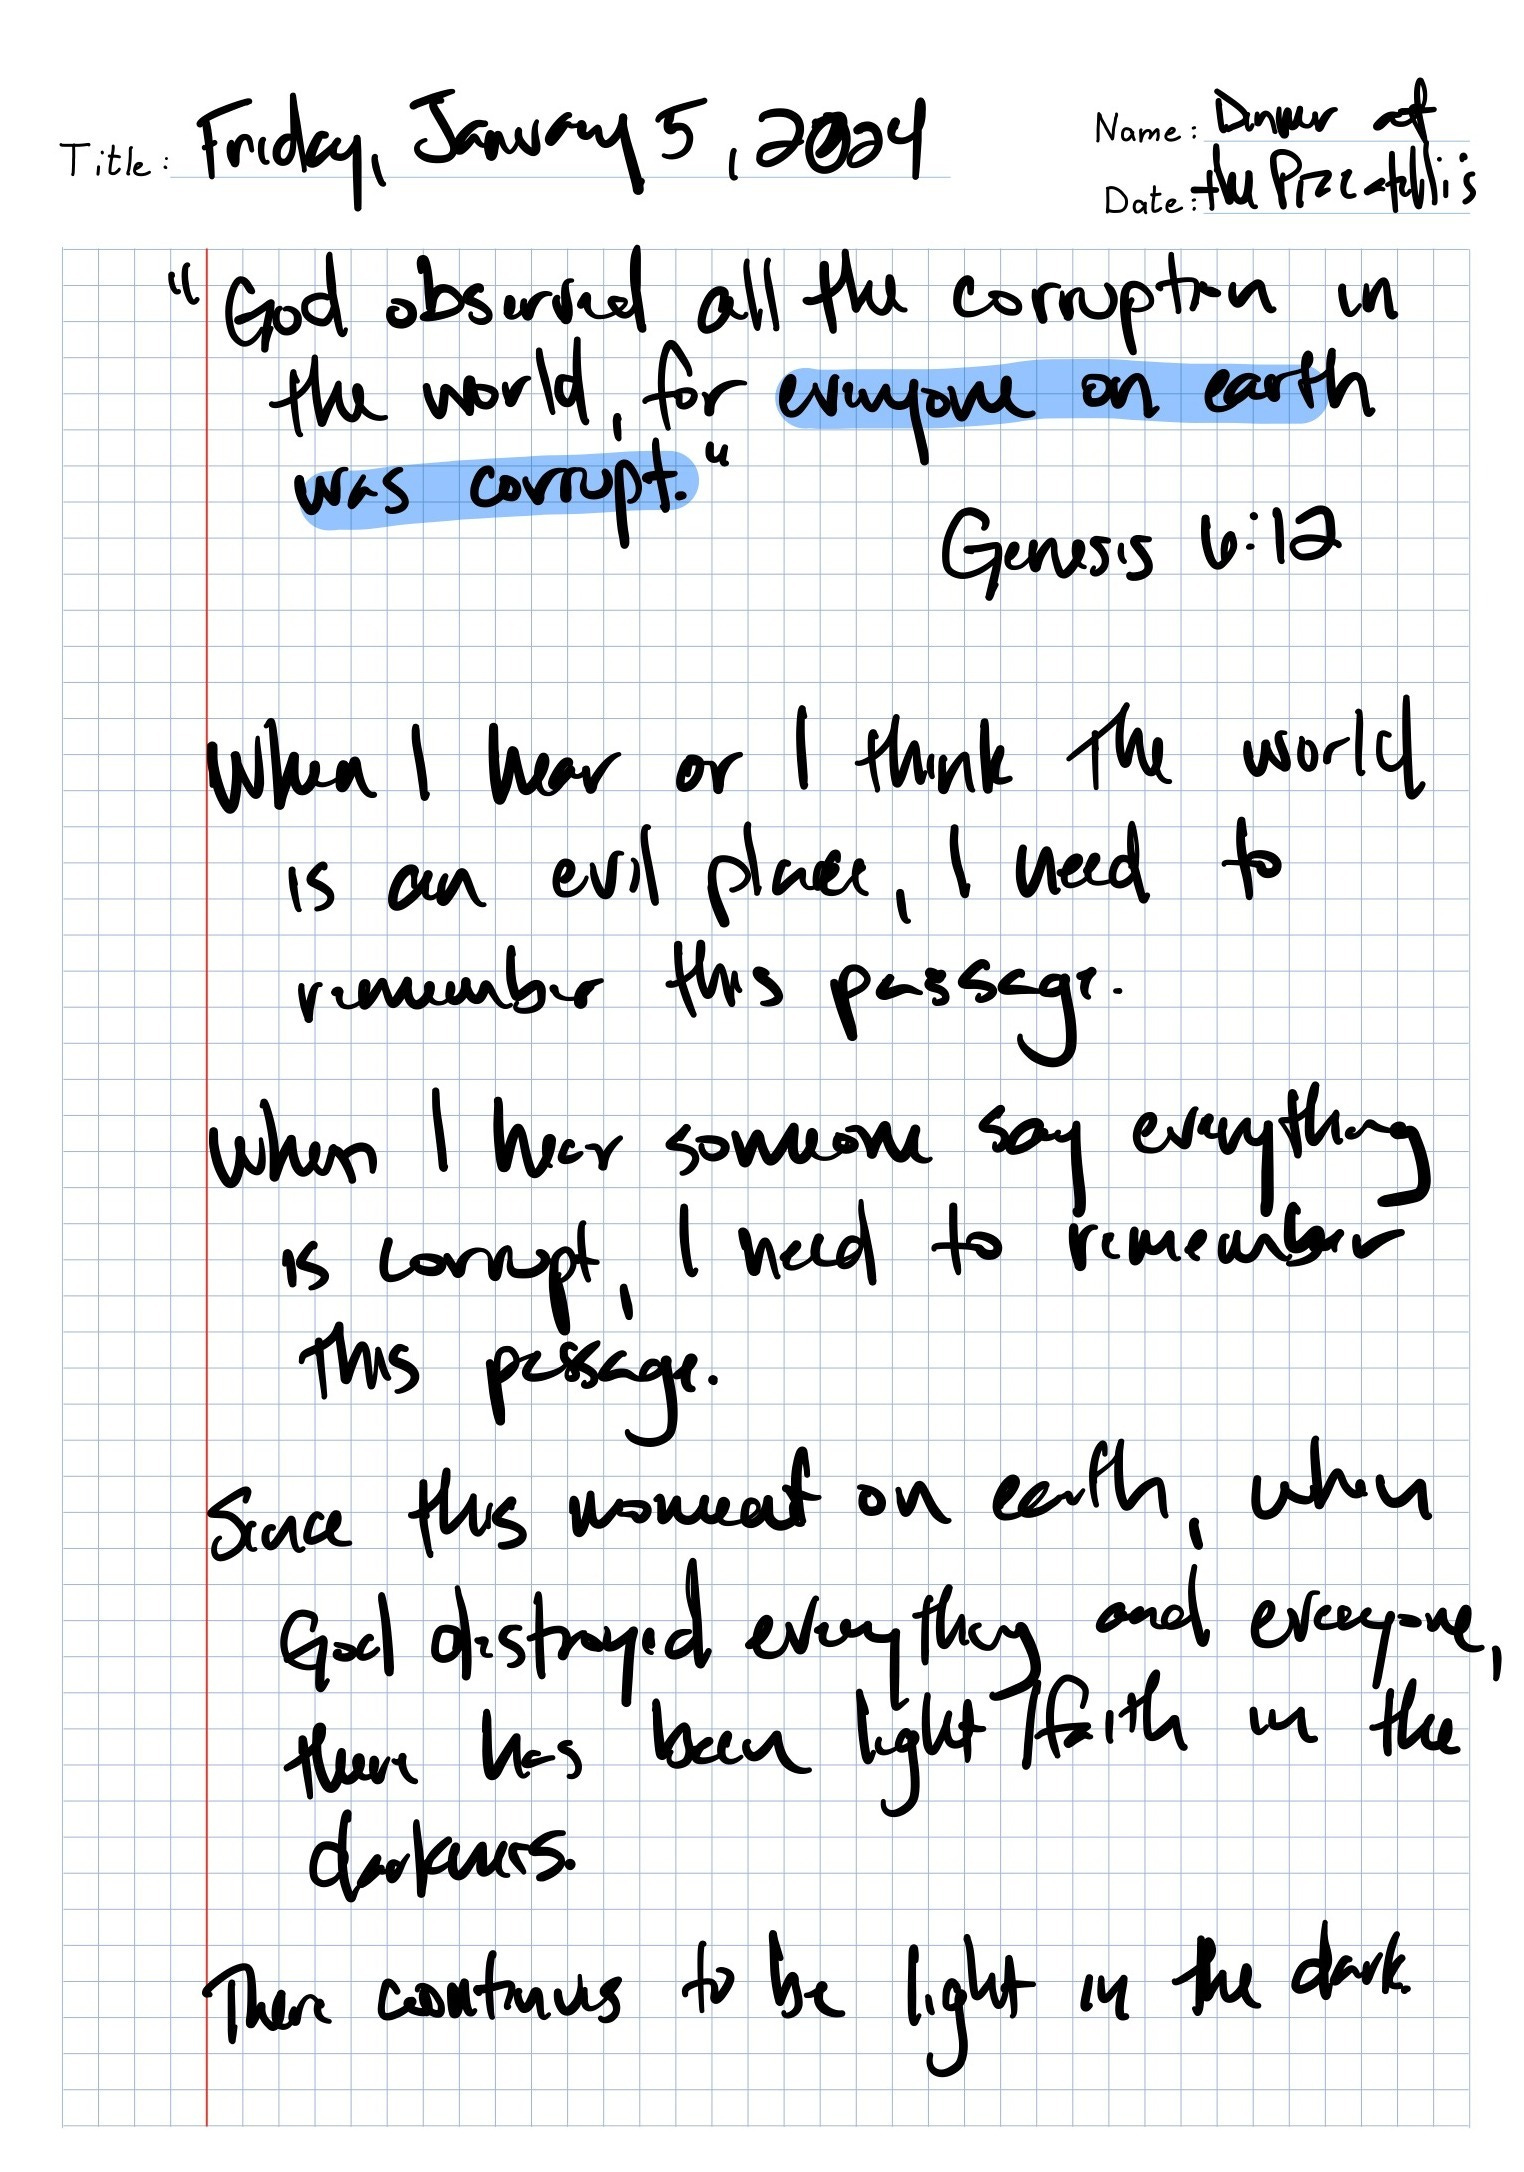 Title: Friday, January 5, 2024
Name: Dinner at
Date: the
"God observed all the corruption in
the world, for everyone on earth
was corrupt."
Genesis 6:12
When I hear or I think the world
is an evil place, I need to
remember this passage.
When I hear someone say everything
is corrupt, I need to remember
this passage.
Since this moment on earth, when
God destroyed everything and everyone,
there has been light/faith in the
darkness.
There continues to be light in the dark.